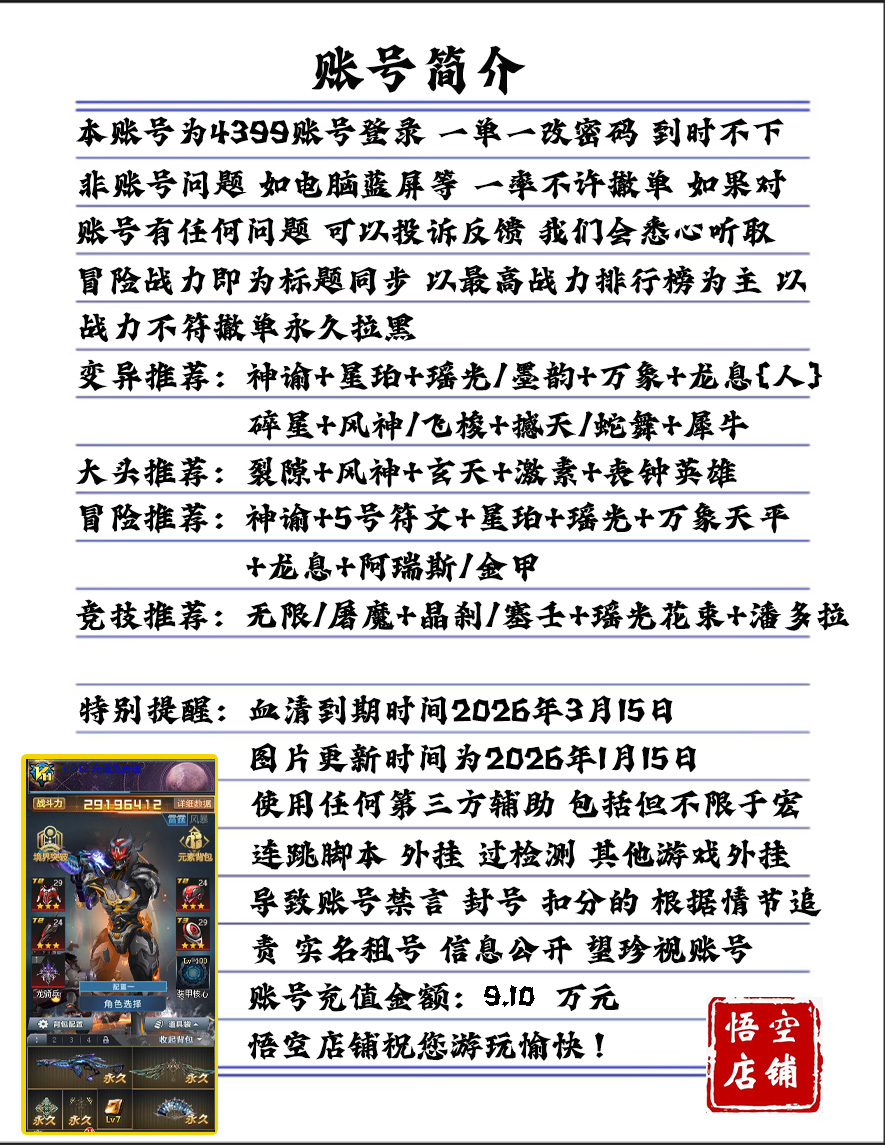 账号简介
本账号为4399账号登录 一单一改密码 到时不下
非账号问题 如电脑蓝屏等 一率不许撤单 如果对
账号有任何问题 可以投诉反馈 我们会悉心听取
冒险战力即为标题同步 以最高战力排行榜为主 以
战力不符撤单永久拉黑
变异推荐：神谕+星珀+瑶光/墨韵+万象+龙息{人}
碎星+风神/飞梭+撼天/蛇舞+犀牛
大头推荐：裂隙+风神+玄天+激素+丧钟英雄
冒险推荐：神谕+5号符文+星珀+瑶光+万象天平
+龙息+阿瑞斯/金甲
竞技推荐：无限/屠魔+晶刹/塞壬+瑶光花束+潘多拉
特别提醒：血清到期时间2026年3月15日
图片更新时间为2026年1月15日
使用任何第三方辅助 包括但不限于宏
连跳脚本 外挂 过检测 其他游戏外挂
导致账号禁言 封号 扣分的 根据情节追
责 实名租号 信息公开 望珍视账号
账号充值金额：9.10 万元
悟空店铺祝您游玩愉快！
战斗力 29196412 详细数据
雷霆 风暴
境界突破 元素背包
29 24
24 29
Lv 100
龙骑兵 装甲核心
配置一
角色选择
背包配置 道具袋
1 2 3 4 收起背包
永久 永久
永久 永久 Lv7 永久
悟空
店铺